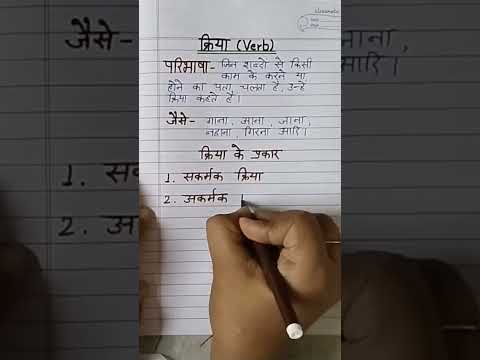 क्रिया (Verb)
परिभाषा- जिन शब्दों से किसी
काम के करने या
होने का पता चलता है, उन्हें
क्रिया कहते है।
जैसे- गाना, आना, जाना,
नहाना, गिरना आदि।
क्रिया के प्रकार
1. सकर्मक क्रिया
2. अकर्मक